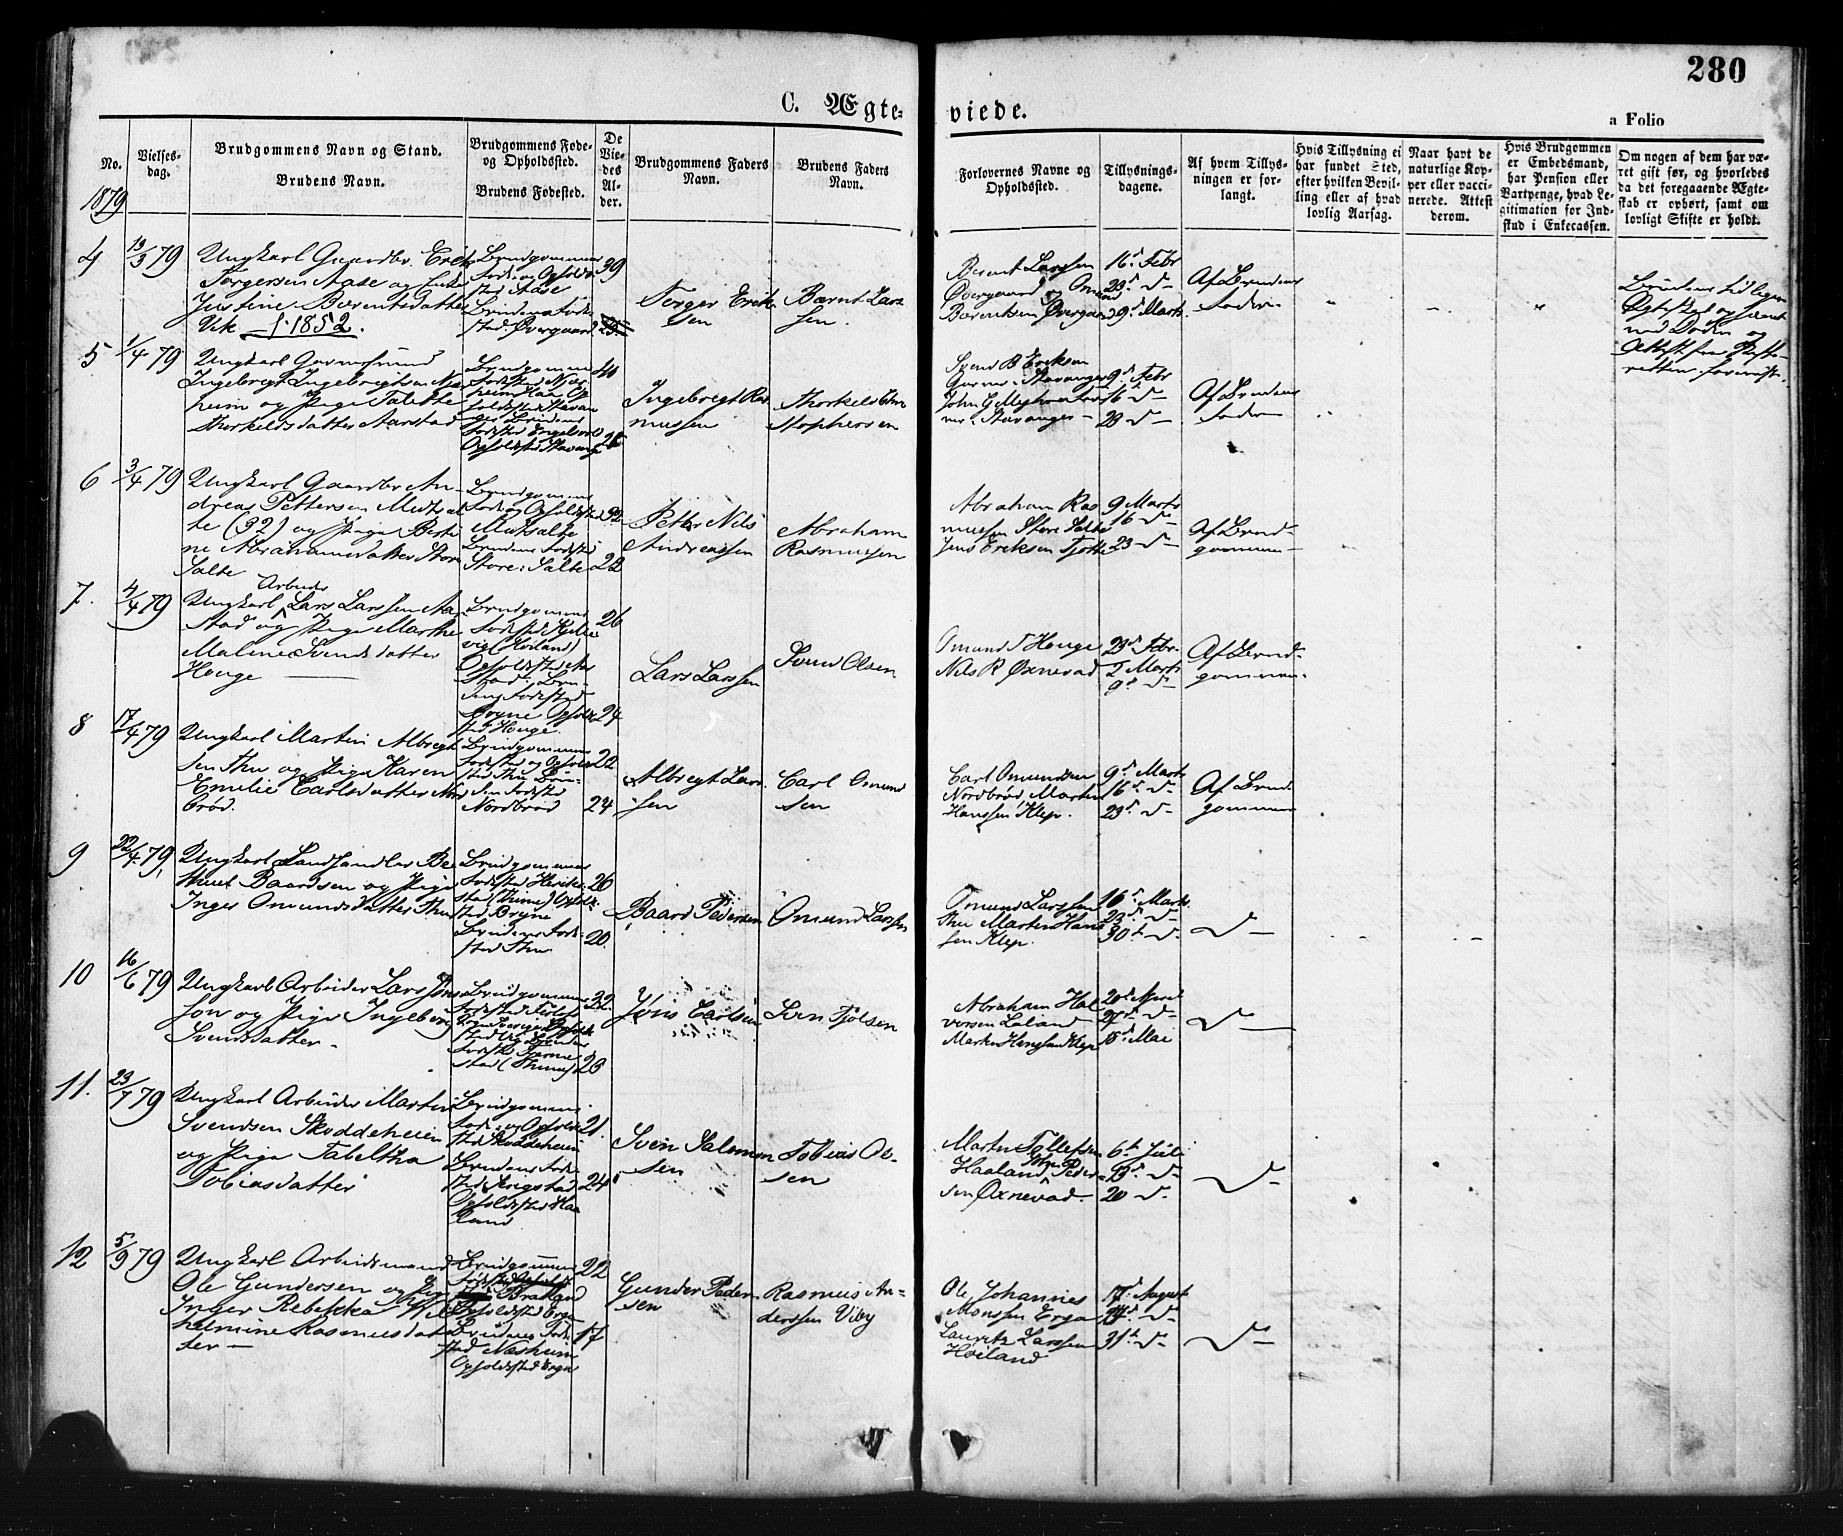 280
C. Ægte-
viede.
a Folio
No.
Vielses-
dag.
Brudgommens Navn og Stand.
Brudens Navn.
Brudgommens Føde-
og Opholdssted.
Brudens Fødested.
De
Vie-
des
Al-
der.
Brudgommens Faders
Navn.
Brudens Faders
Navn.
Forlovernes Navne og
Opholdssted.
Tillysnings-
dagene.
Af hvem Tillys-
ningen er for-
langt.
Hvis Tillysning ei
har fundet Sted,
efter hvilken Bevil-
ling eller af hvad
lovlig Aarsag.
Naar havt de
naturlige Kop-
per eller vacci-
nerede. Attest
derom.
Hvis Brudgommen
er Embedsmand,
har Pension eller
Vartpenge, hvad Le-
gitimation for Ind-
skud i Enkecassen.
Om nogen af dem har væ-
ret gift før, og hvorledes
da det foregaaende Ægte-
skab er ophørt, samt om
lovligt Skifte er holdt.
1879
4
13/3 79
Ungkarl Gaardbr. Erik
Torgersen Aase og Enke
Justine Berentsdatter
Vik f. 1852.
Brudgommens
Føde- og Opholds-
sted Aase
Brudens Føde-
sted: Øvergaard
39
Torger Erik-
sen
Bærnt Lars-
sen.
Berent Larssen
Øvergaard og Omund
Berentsen Øvergaard
16d Febr
23d D-
9d Marts
Af Brudens
Fader
Brudens tidligere
Ægteskab
ved Døden og
Attest fra Skifte-
retten forevist.
5
1/4 79
Ungkarl Garversvend
Ingebregt Ingebrigtsen Næs-
heim og Pige Talette
Thorkelsdatter Aarstad
Brudgommens
Fødested Næs-
heim Op-
holdssted Stavan-
ger Brudens
Fødested
Opholdssted Stavanger
Ingebregt Ras-
mussen
Thorkeld Chri-
stophersen
Svend B Eriksen
Garver Stavanger
John G
Stavanger -
9d Febr
16d D-
23 D-
Af Brudens
Fader
6
3/4 79
Ungkarl Gaardbr An-
dreas Pettersen Midtsal-
te (32) og Pige Berte-
ne Abrahamsdatter Store
Salte
Brudgommens
Føde og Opholdssted
Midtsalte
Brudens Fødested
Store Salte
32
22
Petter Nils
Andreassen
Abraham
Rasmussen
Abraham Ras-
mussen Store Salte
Jens Eriksen Tjøtte
9 Marts
16 D-
23 D-
Af Brud-
gommen -
7.
4/4 79
Arbeider
Ungkarl Lars Larssen Aa-
stad og Pige Marthe
Maline Svendsdatter
Houge
Brudgommens
Fødested Kjelle-
vig (Høiland)
Opholdssted Aa-
stad. Bru-
dens Fødested
Bryne Ophold-
sted Houge.
26
24
Lars Larssen
Svend Olsen
Omund T Houge
Nils R Øxnevad
23d Febr
2 Marts
9d D-
Af Brud-
gommen
8
17/4 79
Ungkarl Martin Albregt-
sen Thu og Pige Karen
Emelie Carlsdatter Nord-
brød.
Brudgommens
Fødested og Ophold-
sted Thu Bru-
dens Fødested
Nordbrød
22
24
Albregt Lars-
sen
Carl Omund
sen
Carl Omundsen
Nordbrød Martin
Hanssen Klep.
9d Marts
16d D-
23d D-
Af Brud
gommen
9
22/4 79
Ungkarl Landhandler Be-
Baardsen og Pige
Inger Omundsdatter Thu
Brudgommens
Fødested
sted (Thime) Ophold-
sted Bryne
Brudens Føde-
sted Thu
26
20.
Baard Pedersen
Omund Larssen
Omund Larssen
Thu Martin Hans-
sen Klep.
16d Marts
23d D-
30d D-
D-
10
16/6 79
Ungkarl Arbeider Lars Jøns-
søn og Pige Ingeborg
Svendsdatter -
Brudgommens
Fødested
22
23
Jøns Carlsen
Sven Tjølsen
Abraham Hal-
vorsen Laland
Martin Hanssen Klep
20d April
27d D-
18d Mai
D-
11.
23/7 79
Ungkarl Arbeider Martin
Svendsen Skoddeheien
og Pige Tabeltha
Tobiasdatter
Brudgommens
Føde- og Ophold-
sted Skoddeheien
Brudens Føde-
sted
Opholdssted Haa-
land
21.
24
Sven Salomon-
sen
Tobias Ol-
sen
Martin Tollefsen
Haaland Peder-
sen Øxnevad.
6te Juli
13d D-
20 D-
D-
12
5/9 79
Ungkarl Arbeidsmand
Ole Gundersen og Pige
Inger Rebekka Wil-
helmine Rasmusdat-
ter -
Brudgommens
Opholdssted Erga
Brudens Føde-
sted Næsheim
Opholdssted Erga
22
17
Gunder Peder-
sen
Rasmus An-
derssen Viby
Ole Johannes
Monssen Erga
Lauritz Larssen
Høiland
17d August
24d D-
31te D-
D-